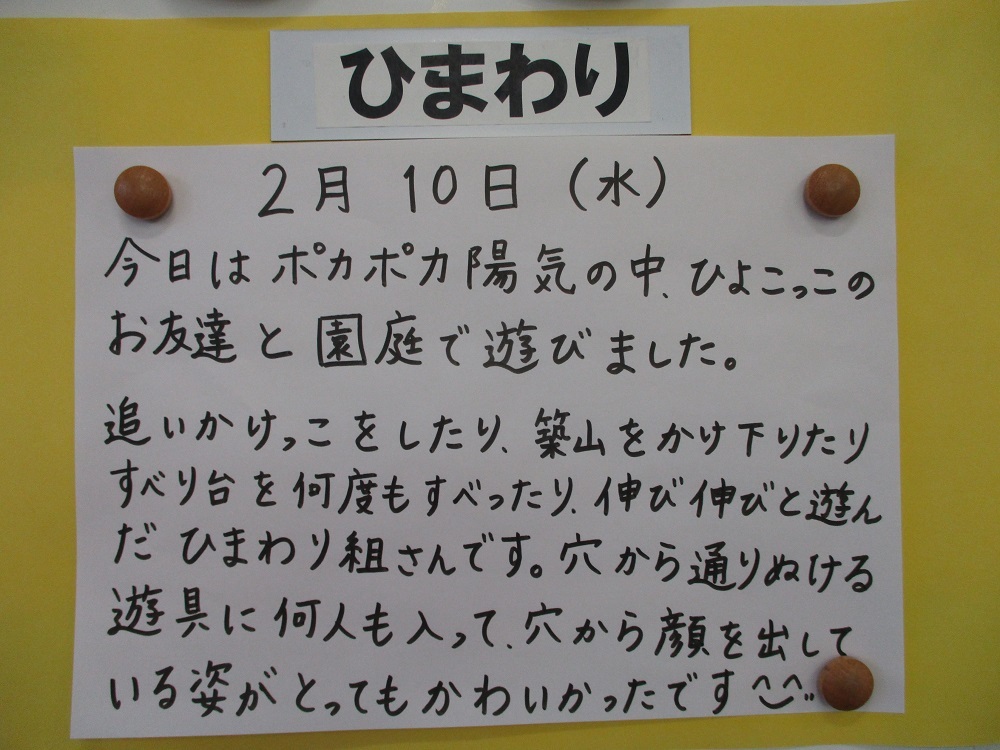 ひまわり
2月 10日 (水)
今日は ポカポカ陽気の中、ひよこっこの
お友達と 園庭で遊びました。
追いかけっこをしたり、築山をかけ下りたり
すべり台を何度もすべったり、伸び伸びと遊ん
だ ひまわり組さんです。穴から通りぬける
遊具に何人も入って、穴から顔を出して
いる姿がとってもかわいかったです^‿^